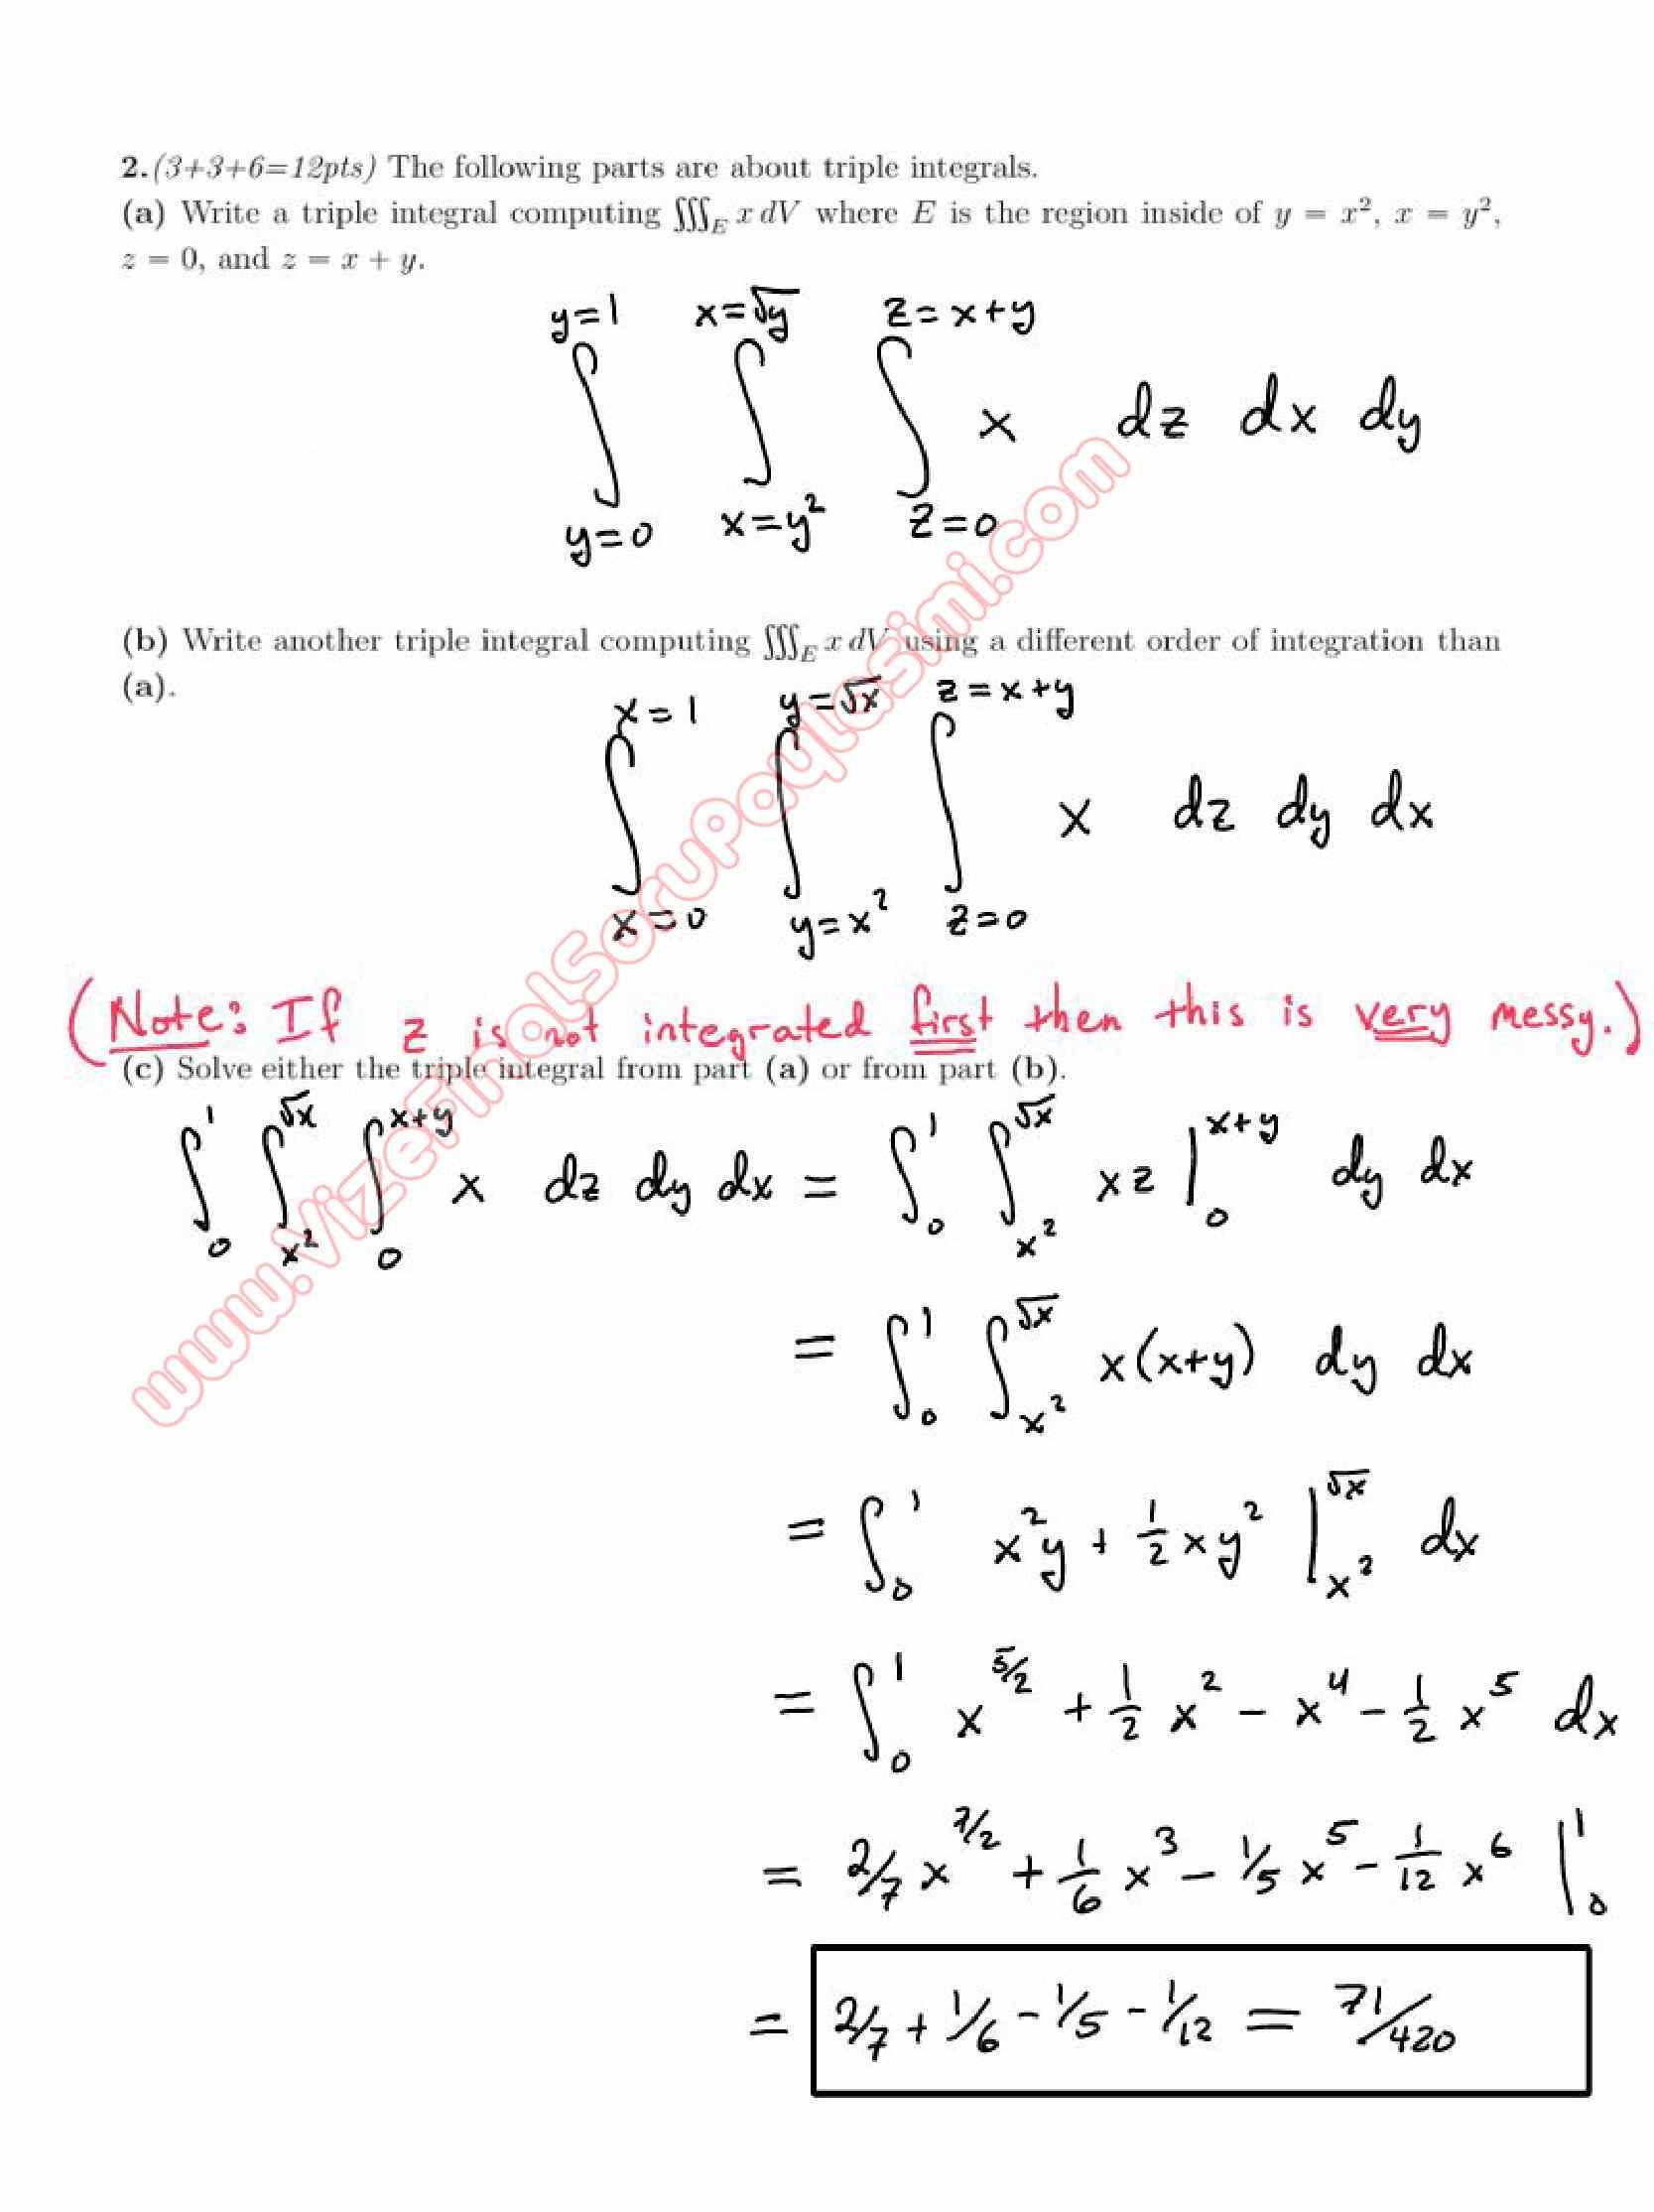 2.(3+3+6=12pts) The following parts are about triple integrals.
(a) Write a triple integral computing ∭_E x dV where E is the region inside of y = x², x = y²,
z = 0, and z = x + y.
y=1 x=√y z=x+y
∫ ∫ ∫ x dz dx dy
y=0 x=y² z=0
(b) Write another triple integral computing ∭_E x dV using a different order of integration than
(a).
x=1 y=√x z=x+y
∫ ∫ ∫ x dz dy dx
x=0 y=x² z=0
(Note: If z is not integrated first then this is very messy.)
(c) Solve either the triple integral from part (a) or from part (b).
∫₀¹ ∫_{x²}^{√x} ∫₀^{x+y} x dz dy dx = ∫₀¹ ∫_{x²}^{√x} xz |₀^{x+y} dy dx
= ∫₀¹ ∫_{x²}^{√x} x(x+y) dy dx
= ∫₀¹ x²y + ½xy² |_{x²}^{√x} dx
= ∫₀¹ x^{5/2} + ½ x² - x⁴ - ½ x⁵ dx
= 2/7 x^{7/2} + 1/6 x³ - 1/5 x⁵ - 1/12 x⁶ |₀¹
= 2/7 + 1/6 - 1/5 - 1/12 = 71/420
www.VizeFinalSoruPaylasimi.com